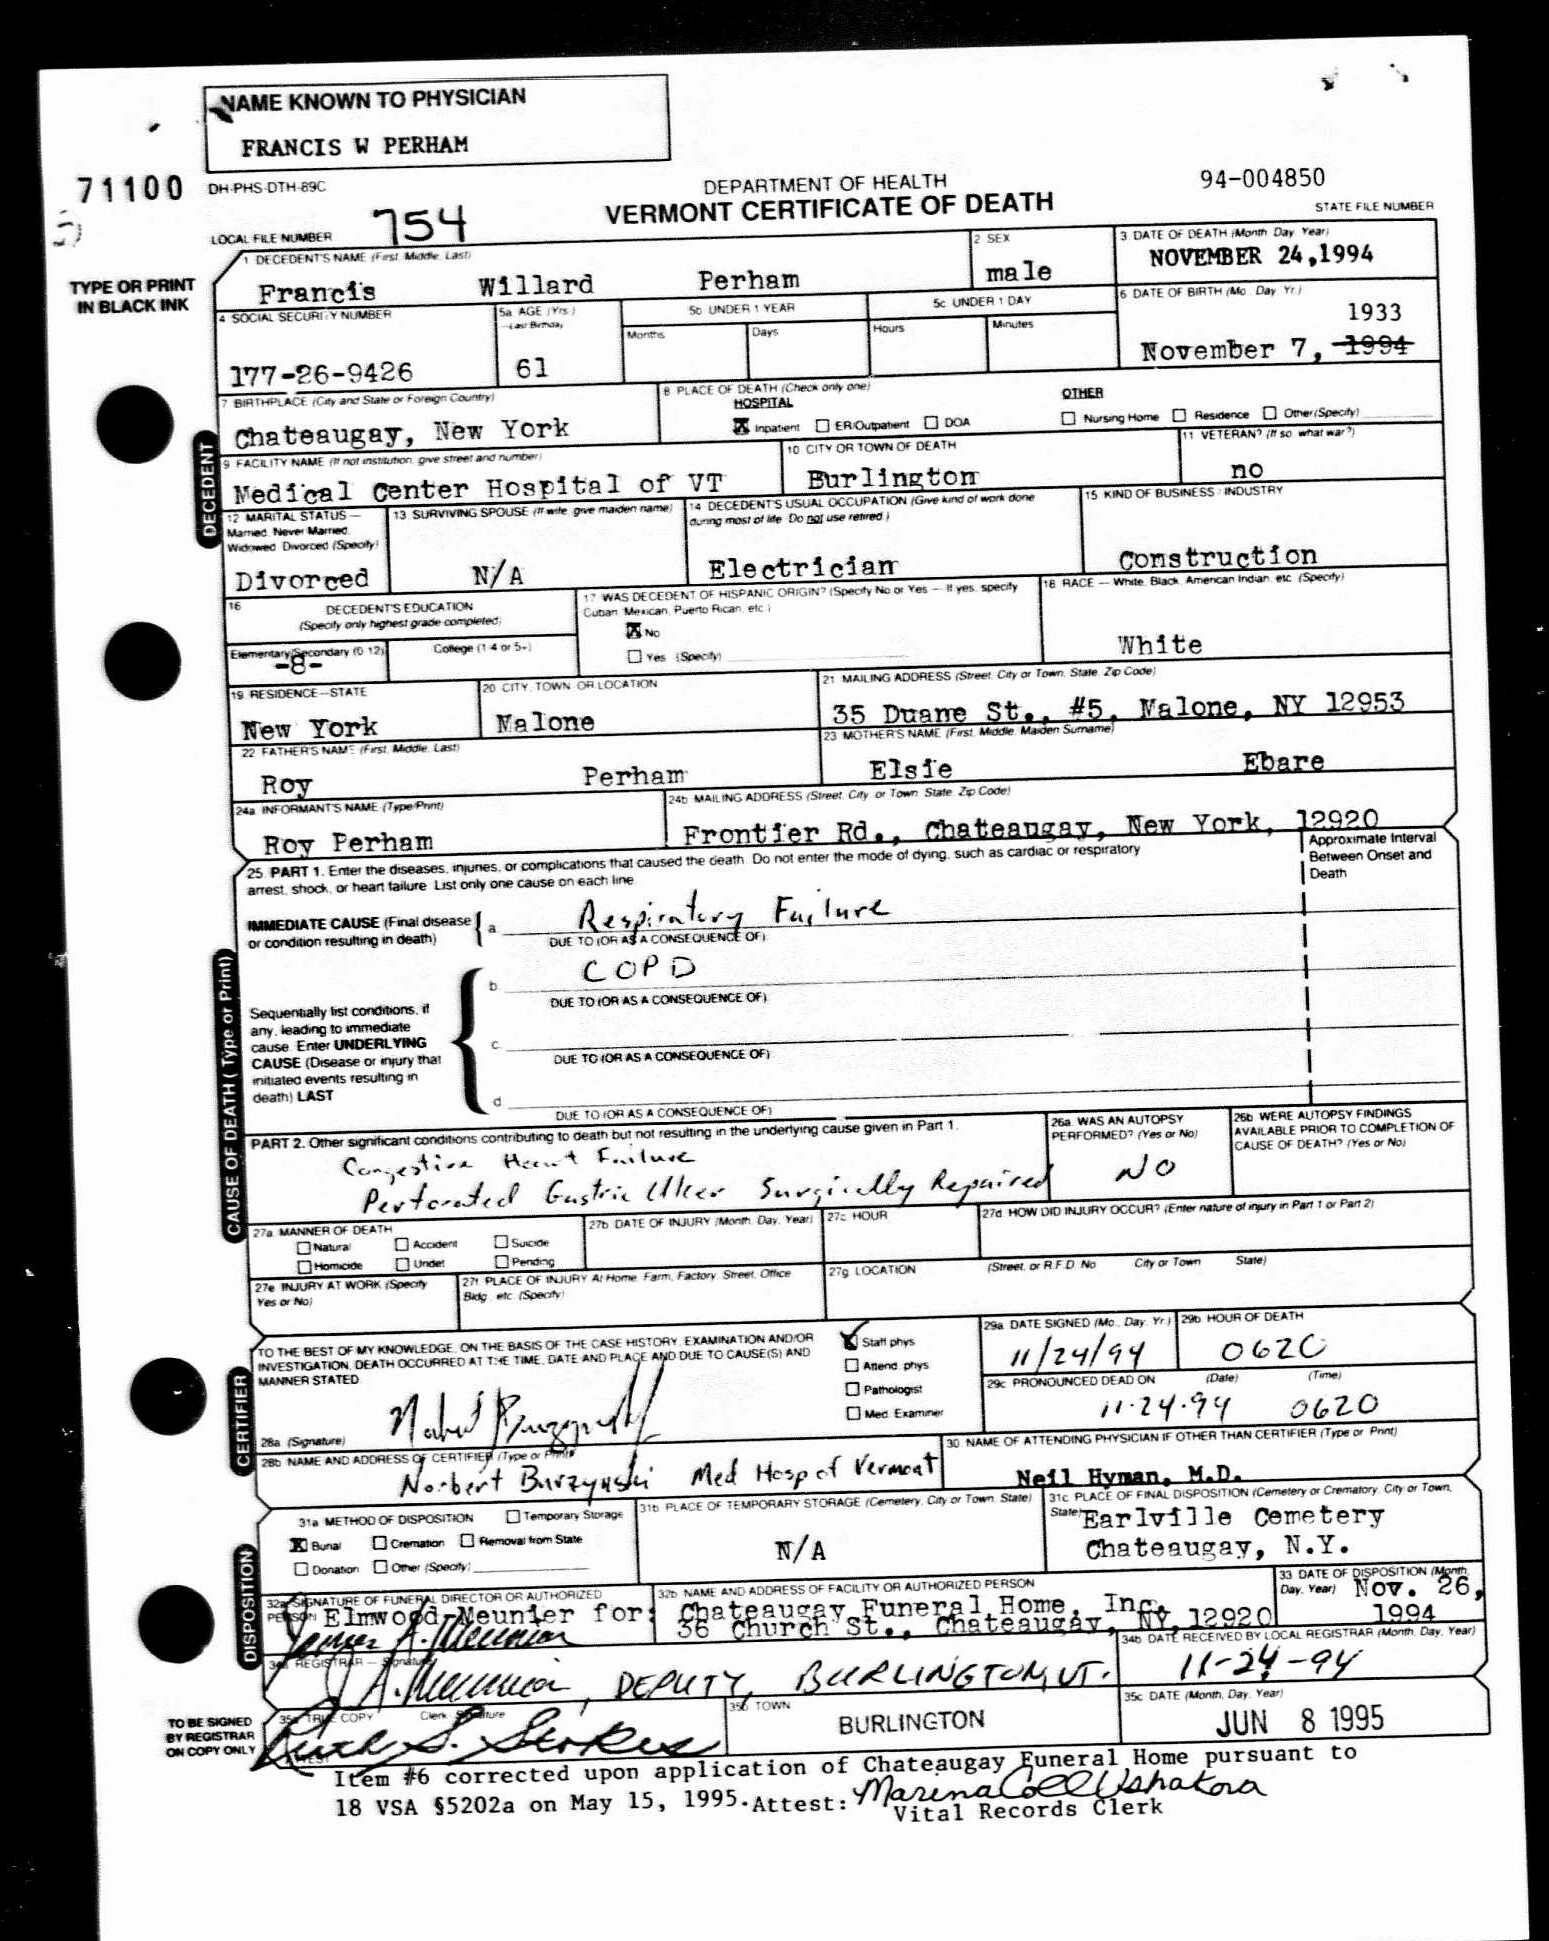 NAME KNOWN TO PHYSICIAN
FRANCIS W PERHAM
71100 DH-PHS-DTH-89C
DEPARTMENT OF HEALTH 94-004850
VERMONT CERTIFICATE OF DEATH STATE FILE NUMBER
LOCAL FILE NUMBER 754
TYPE OR PRINT
IN BLACK INK
1 DECEDENT'S NAME (First, Middle, Last) 2 SEX 3 DATE OF DEATH (Month, Day, Year)
Francis Willard Perham male NOVEMBER 24,1994
4 SOCIAL SECURITY NUMBER 5a AGE (Yrs.) 5b UNDER 1 YEAR 5c UNDER 1 DAY 6 DATE OF BIRTH (Mo., Day, Yr.)
—Last Birthday Months Days Hours Minutes 1933
177-26-9426 61 November 7, 1994
DECEDENT
7 BIRTHPLACE (City and State or Foreign Country) 8 PLACE OF DEATH (Check only one)
HOSPITAL OTHER
Chateaugay, New York Inpatient ER/Outpatient DOA Nursing Home Residence Other (Specify)
9 FACILITY NAME (If not institution, give street and number) 10 CITY OR TOWN OF DEATH 11 VETERAN? (If so, what war?)
Medical Center Hospital of VT Burlington no
12 MARITAL STATUS — 13 SURVIVING SPOUSE (If wife, give maiden name) 14 DECEDENT'S USUAL OCCUPATION (Give kind of work done 15 KIND OF BUSINESS / INDUSTRY
Married, Never Married, during most of life. Do not use retired.)
Widowed, Divorced (Specify)
Divorced N/A Electrician Construction
16 DECEDENT'S EDUCATION 17 WAS DECEDENT OF HISPANIC ORIGIN? (Specify No or Yes — If yes, specify 18 RACE — White, Black, American Indian, etc. (Specify)
(Specify only highest grade completed) Cuban, Mexican, Puerto Rican, etc.)
No
Elementary/Secondary (0-12) College (1-4 or 5+) Yes (Specify) White
-8-
19 RESIDENCE—STATE 20 CITY, TOWN, OR LOCATION 21 MAILING ADDRESS (Street, City or Town, State, Zip Code)
New York Malone 35 Duane St., #5, Malone, NY 12953
22 FATHER'S NAME (First, Middle, Last) 23 MOTHER'S NAME (First, Middle, Maiden Surname)
Roy Perham Elsie Ebare
24a INFORMANT'S NAME (Type/Print) 24b MAILING ADDRESS (Street, City or Town, State, Zip Code)
Roy Perham Frontier Rd., Chateaugay, New York, 12920
CAUSE OF DEATH (Type or Print)
25 PART 1. Enter the diseases, injuries, or complications that caused the death. Do not enter the mode of dying, such as cardiac or respiratory Approximate Interval
arrest, shock, or heart failure. List only one cause on each line. Between Onset and
Death
IMMEDIATE CAUSE (Final disease a Respiratory Failure
or condition resulting in death) DUE TO (OR AS A CONSEQUENCE OF)
b COPD
DUE TO (OR AS A CONSEQUENCE OF)
Sequentially list conditions, if
any, leading to immediate
cause. Enter UNDERLYING c
CAUSE (Disease or injury that DUE TO (OR AS A CONSEQUENCE OF)
initiated events resulting in
death) LAST d
DUE TO (OR AS A CONSEQUENCE OF)
PART 2. Other significant conditions contributing to death but not resulting in the underlying cause given in Part 1. 26a WAS AN AUTOPSY 26b WERE AUTOPSY FINDINGS
PERFORMED? (Yes or No) AVAILABLE PRIOR TO COMPLETION OF
CAUSE OF DEATH? (Yes or No)
Congestive Heart Failure NO
Perforated Gastric Ulcer Surgically Repaired
27a MANNER OF DEATH 27b DATE OF INJURY (Month, Day, Year) 27c HOUR 27d HOW DID INJURY OCCUR? (Enter nature of injury in Part 1 or Part 2)
Natural Accident Suicide
Homicide Undet Pending
27e INJURY AT WORK (Specify 27f PLACE OF INJURY At Home, Farm, Factory, Street, Office 27g LOCATION (Street, or R.F.D. No City or Town State)
Yes or No) Bldg., etc. (Specify)
CERTIFIER
TO THE BEST OF MY KNOWLEDGE, ON THE BASIS OF THE CASE HISTORY, EXAMINATION AND/OR Staff phys 29a DATE SIGNED (Mo., Day, Yr.) 29b HOUR OF DEATH
INVESTIGATION, DEATH OCCURRED AT THE TIME, DATE AND PLACE AND DUE TO CAUSE(S) AND Attend. phys 11/24/94 0620
MANNER STATED Pathologist 29c PRONOUNCED DEAD ON (Date) (Time)
28a (Signature) Med. Examiner 11-24-94 0620
28b NAME AND ADDRESS OF CERTIFIER (Type or Print) 30 NAME OF ATTENDING PHYSICIAN IF OTHER THAN CERTIFIER (Type or Print)
Norbert Burzynski Med Hosp of Vermont Neil Hyman, M.D.
DISPOSITION
31a METHOD OF DISPOSITION Temporary Storage 31b PLACE OF TEMPORARY STORAGE (Cemetery, City or Town, State) 31c PLACE OF FINAL DISPOSITION (Cemetery or Crematory, City or Town,
State) Earlville Cemetery
Burial Cremation Removal from State N/A Chateaugay, N.Y.
Donation Other (Specify)
32a SIGNATURE OF FUNERAL DIRECTOR OR AUTHORIZED 32b NAME AND ADDRESS OF FACILITY OR AUTHORIZED PERSON 33 DATE OF DISPOSITION (Month,
PERSON Elmwood-Meunier for: Chateaugay Funeral Home, Inc. Day, Year) Nov. 26,
James A. Meunier 36 Church St., Chateaugay, NY, 12920 1994
34a REGISTRAR — Signature 34b DATE RECEIVED BY LOCAL REGISTRAR (Month, Day, Year)
J A. Meunier, DEPUTY, BURLINGTON, VT. 11-24-94
TO BE SIGNED 35a TRUE COPY Clerk Signature 35b TOWN 35c DATE (Month, Day, Year)
BY REGISTRAR
ON COPY ONLY ATTEST BURLINGTON JUN 8 1995
Item #6 corrected upon application of Chateaugay Funeral Home pursuant to
18 VSA §5202a on May 15, 1995. Attest:
Vital Records Clerk